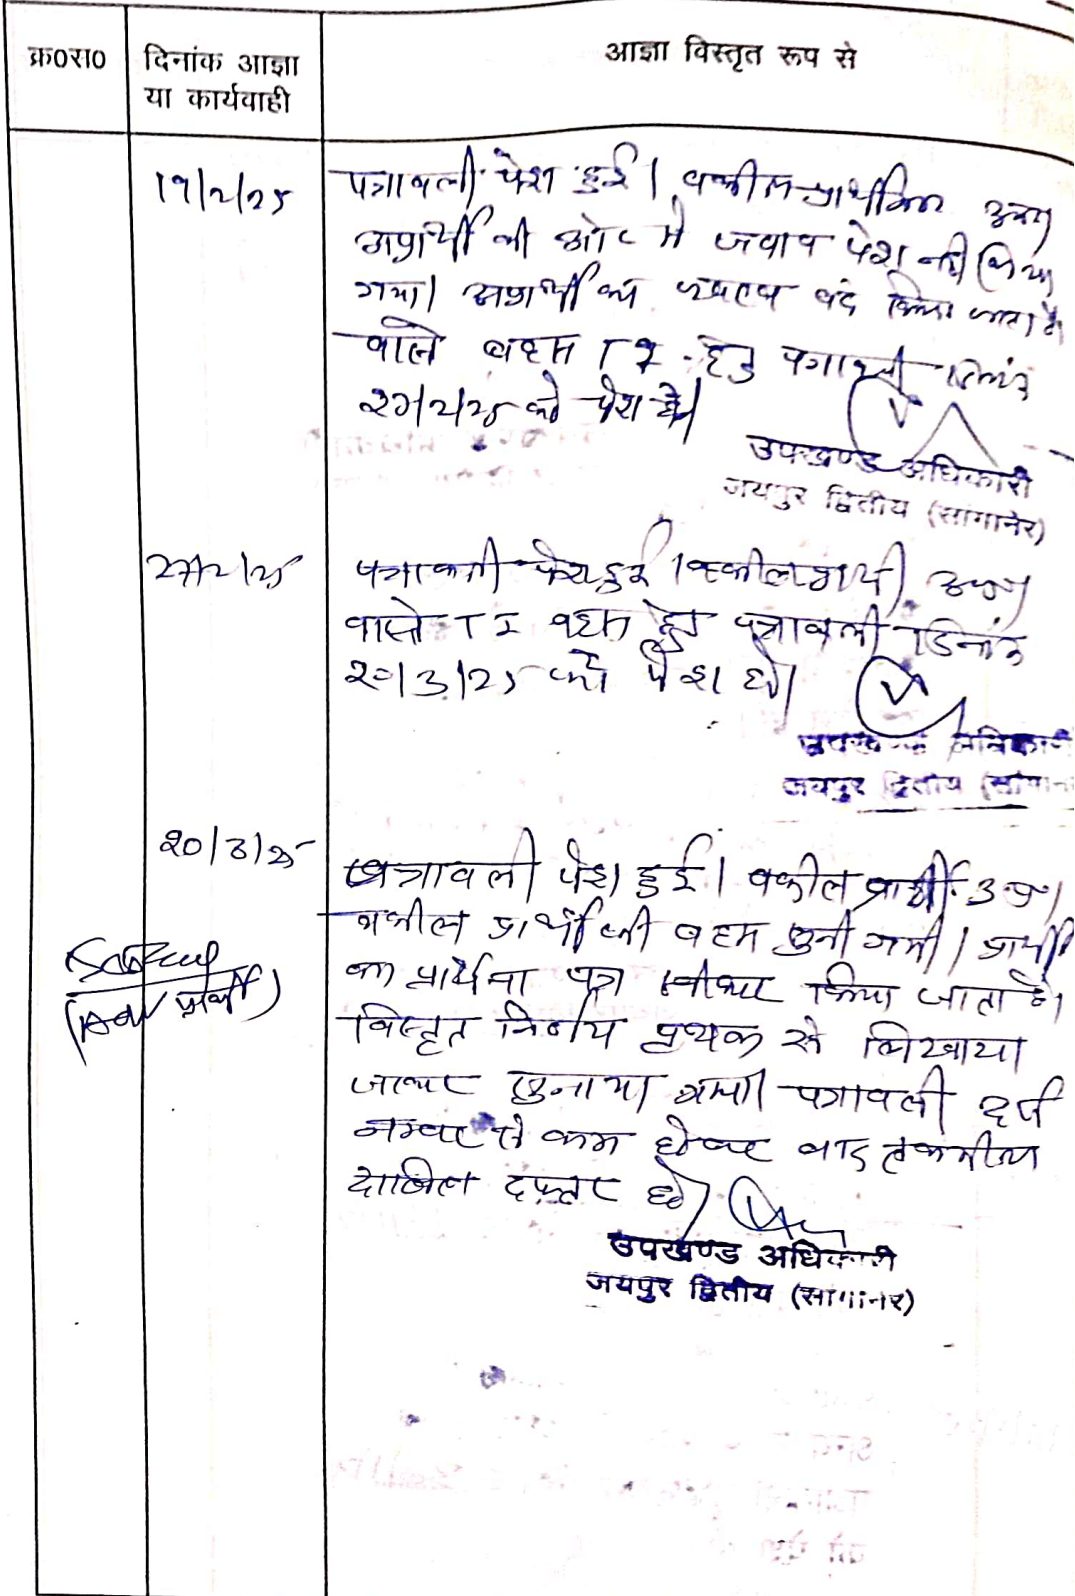 क्र०स०
दिनांक आज्ञा
या कार्यवाही
आज्ञा विस्तृत रूप से
19/2/25
पत्रावली पेश हुई। वकील
अप्रार्थी की ओर से जवाब पेश नहीं किया
गया। अप्रार्थी का बंद किया जाता है
वास्ते बहस T I हेतु पत्रावली दिनांक
27/2/25 को पेश हो।
उपखण्ड अधिकारी
जयपुर द्वितीय (सांगानेर)
27/2/25
पत्रावली पेश हुई। वकील प्रार्थी
वास्ते T I बहस हेतु पत्रावली दिनांक
20/3/25 को पेश हो।
उपखण्ड अधिकारी
जयपुर द्वितीय
20/3/25
पत्रावली पेश हुई। वकील प्रार्थी उप।
वकील प्रार्थी की बहस सुनी गयी। प्रार्थी
का प्रार्थना पत्र स्वीकार किया जाता है।
विस्तृत निर्णय पृथक से लिखाया
जाकर सुनाया गया। पत्रावली दर्ज
नम्बर से कम होकर बाद तकमील
दाखिल दफ्तर हो।
उपखण्ड अधिकारी
जयपुर द्वितीय (सांगानेर)